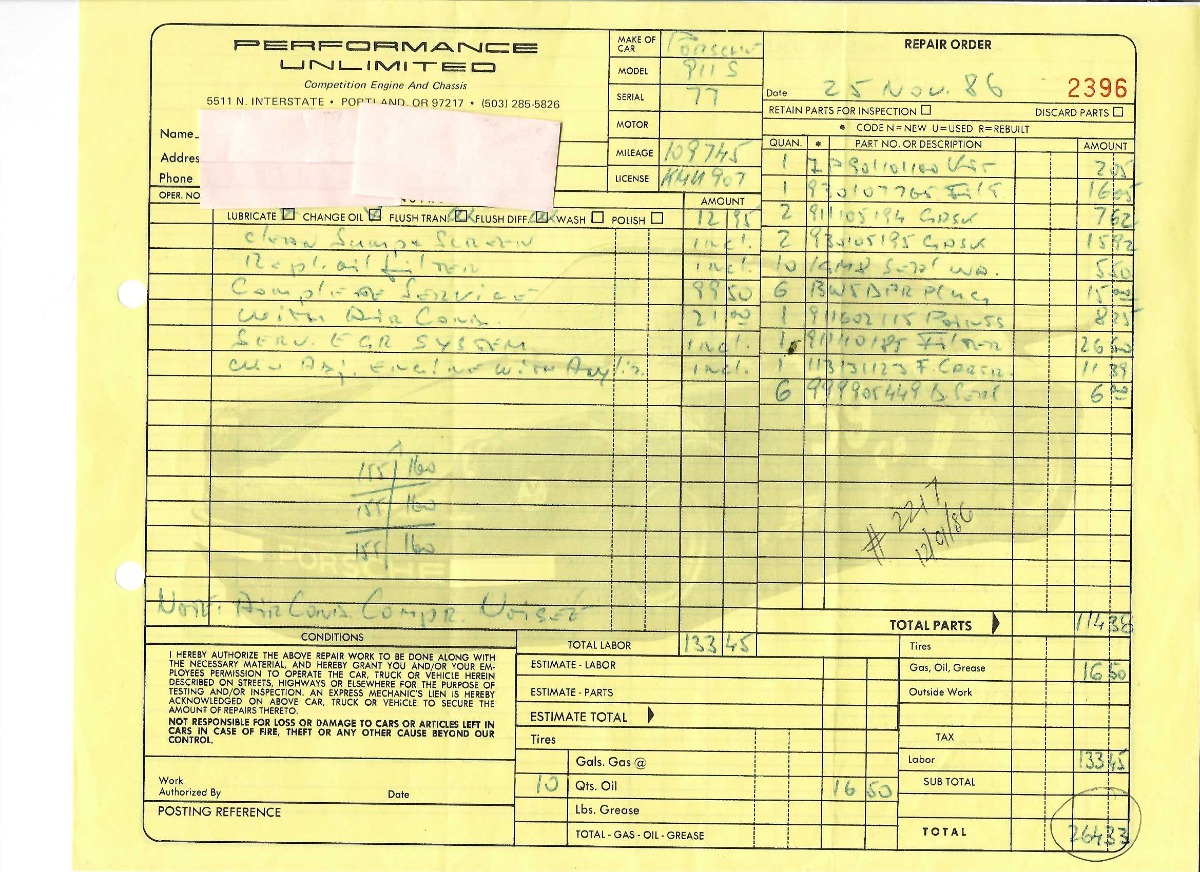 PERFORMANCE
UNLIMITED
Competition Engine And Chassis
5511 N. INTERSTATE • PORTLAND, OR 97217 • (503) 285-5826
Name
Addres
Phone
MAKE OF CAR Porsche
MODEL 911 S
SERIAL 77
MOTOR
MILEAGE 109745
LICENSE
REPAIR ORDER
Date 25 Nov. 86 2396
RETAIN PARTS FOR INSPECTION DISCARD PARTS
* CODE N=NEW U=USED R=REBUILT
QUAN. * PART NO. OR DESCRIPTION AMOUNT
1 2 05
1 930107765 Filt 16 05
2 911105194 GASK 7 62
2 930105195 GASK 15 92
10 Seal 5 50
6 Plug 15 00
1 911602115 Points 8 25
1 Filter 26 50
1 113131123 11 39
6 999905449 6 00
# 2217
12/01/86
TOTAL PARTS 114 38
OPER. NO. AMOUNT
LUBRICATE CHANGE OIL FLUSH TRAN. FLUSH DIFF. WASH POLISH 12 95
Clean Sump Screen incl.
Repl. oil filter incl.
Complete Service 99 50
With Air Cond. 21 00
Serv. EGR System incl.
Adj. Engine With incl.
155 160
155 160
155 160
Note: Air Cond. Compr. Noisee
CONDITIONS
I HEREBY AUTHORIZE THE ABOVE REPAIR WORK TO BE DONE ALONG WITH
THE NECESSARY MATERIAL, AND HEREBY GRANT YOU AND/OR YOUR EM-
PLOYEES PERMISSION TO OPERATE THE CAR, TRUCK OR VEHICLE HEREIN
DESCRIBED ON STREETS, HIGHWAYS OR ELSEWHERE FOR THE PURPOSE OF
TESTING AND/OR INSPECTION. AN EXPRESS MECHANIC'S LIEN IS HEREBY
ACKNOWLEDGED ON ABOVE CAR, TRUCK OR VEHICLE TO SECURE THE
AMOUNT OF REPAIRS THERETO.
NOT RESPONSIBLE FOR LOSS OR DAMAGE TO CARS OR ARTICLES LEFT IN
CARS IN CASE OF FIRE, THEFT OR ANY OTHER CAUSE BEYOND OUR
CONTROL.
Work
Authorized By Date
POSTING REFERENCE
TOTAL LABOR 133 45
ESTIMATE - LABOR
ESTIMATE - PARTS
ESTIMATE TOTAL
Tires
Gals. Gas @
10 Qts. Oil 16 50
Lbs. Grease
TOTAL - GAS - OIL - GREASE
Tires
Gas, Oil, Grease 16 50
Outside Work
TAX
Labor 133 45
SUB TOTAL
TOTAL 264 33
PORSCHE